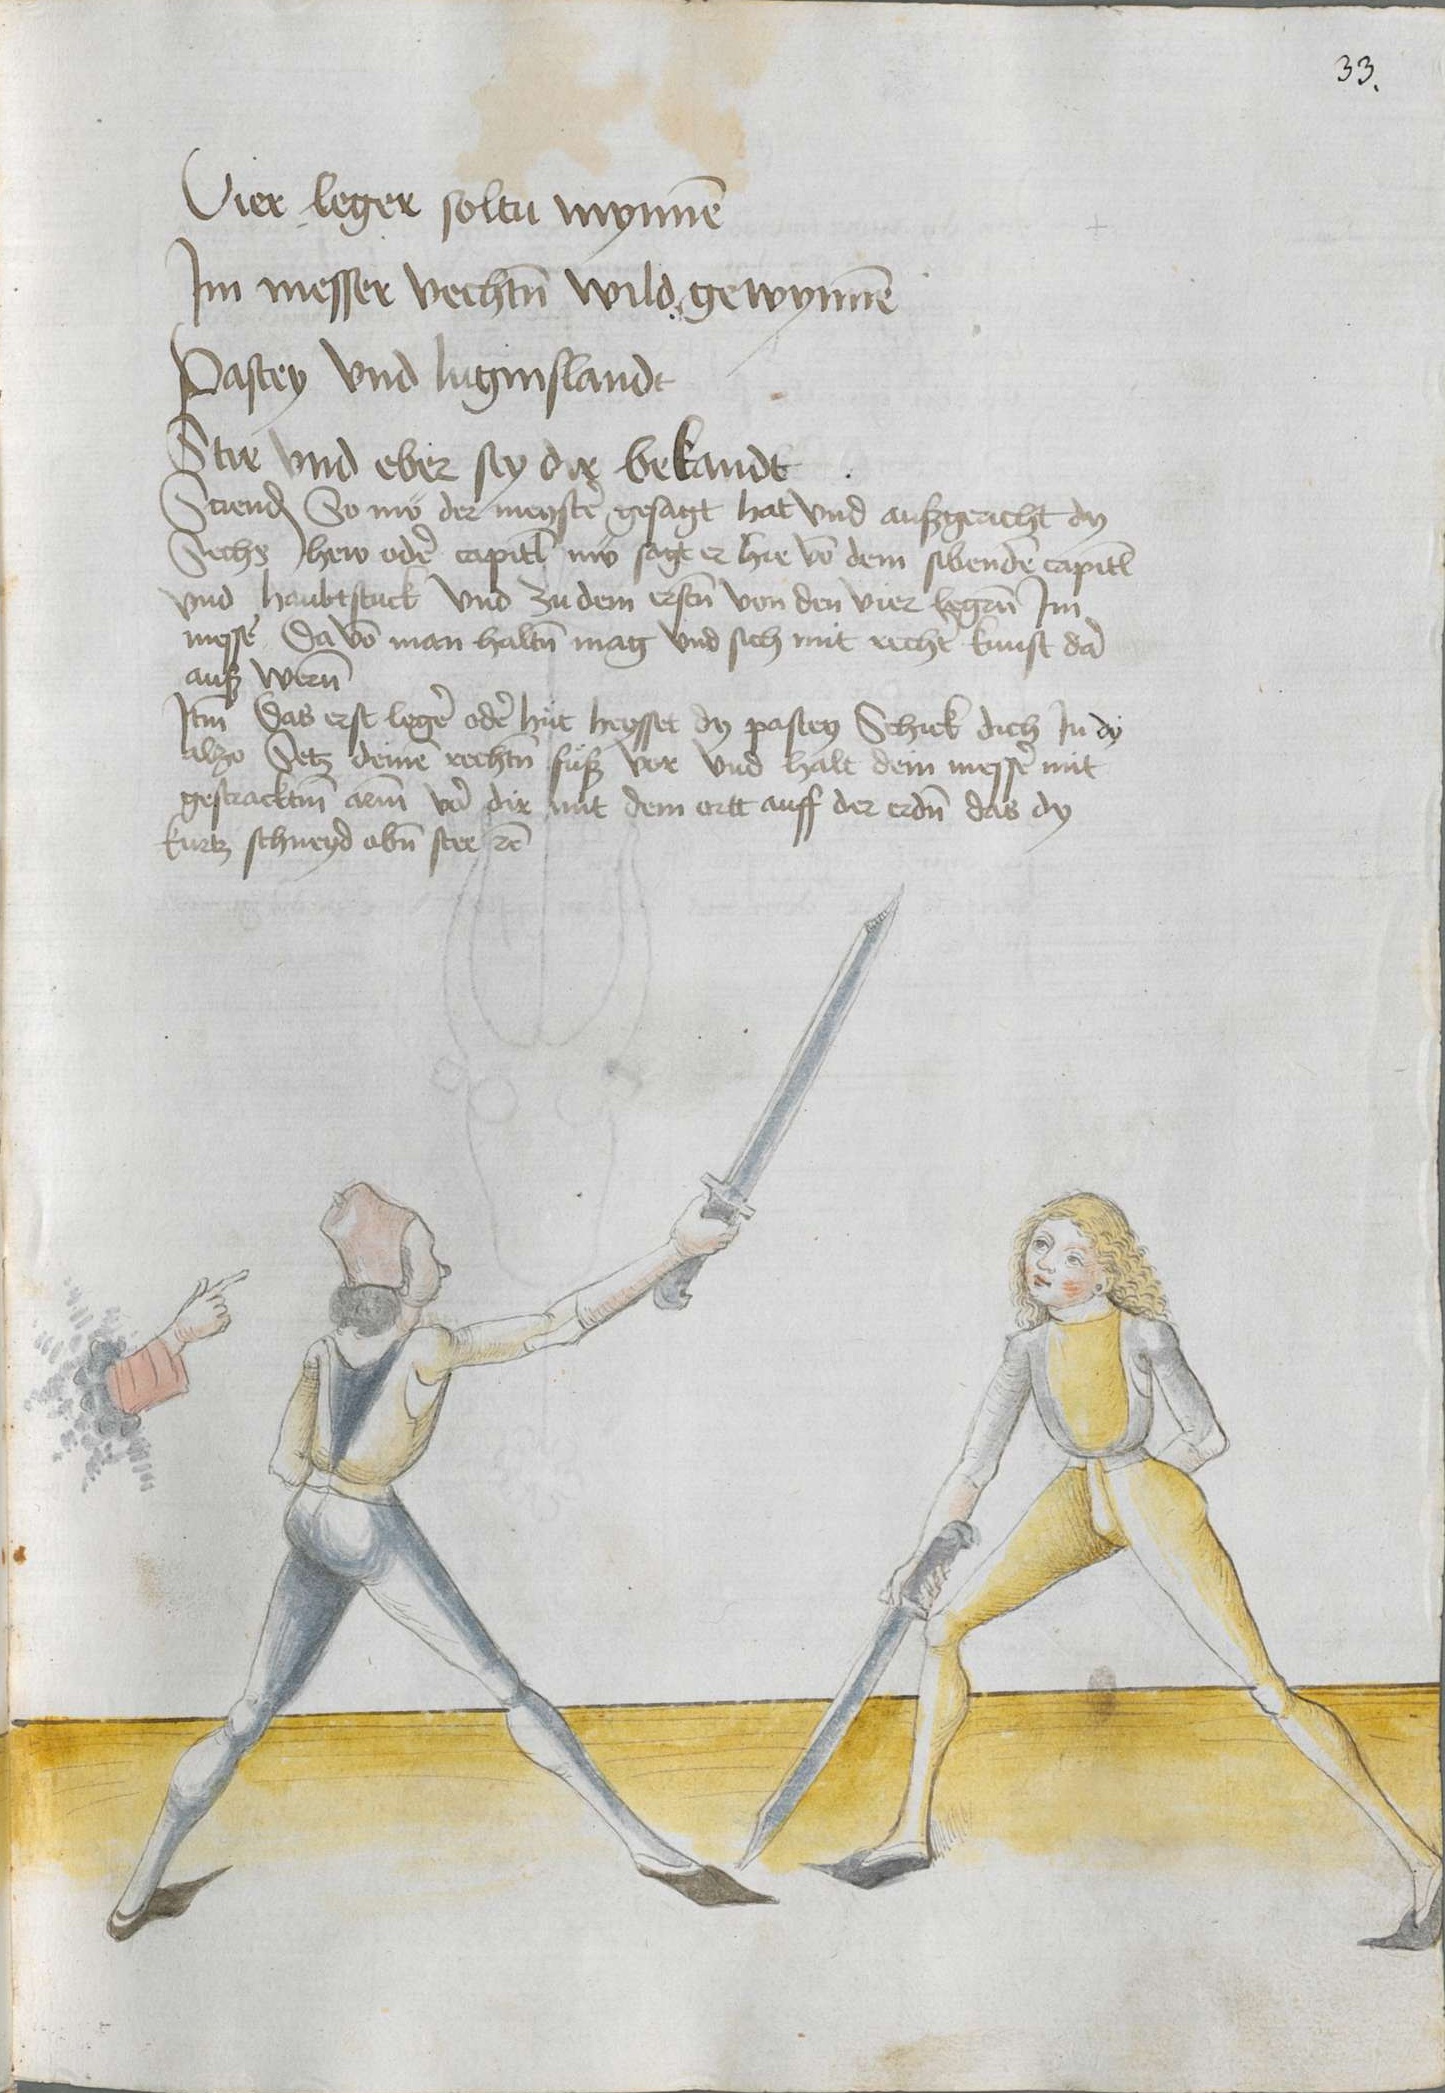 33.
Vier leger soltu mynnē
Im messer vechtn̄ wild gewynnē
Pastey vnd luginslandt
Stir vnd eber sey dir bekandt
So nw der meyster gesagt hat vnd auſzgericht dy
Sechs hew oder capitl nw sagt er hie vō dem sibenden capitl
vnd haubtstuck vnd zu dem erstn̄ von den vier legern̄ Im
messer Da vō man haltn̄ mag vnd sich mit rechter kunst dar
auſz wern̄
Itm̄ Das erst leger oder hüt heysset dy pastey Schick dich In dy
alzo Setz deinē rechtn̄ fuſz vor vnd halt dein messer mit
gestracktm̄ arm̄ vor dir mit dem ortt auff der erdn̄ das dy
kurtz schneyd obn̄ stee